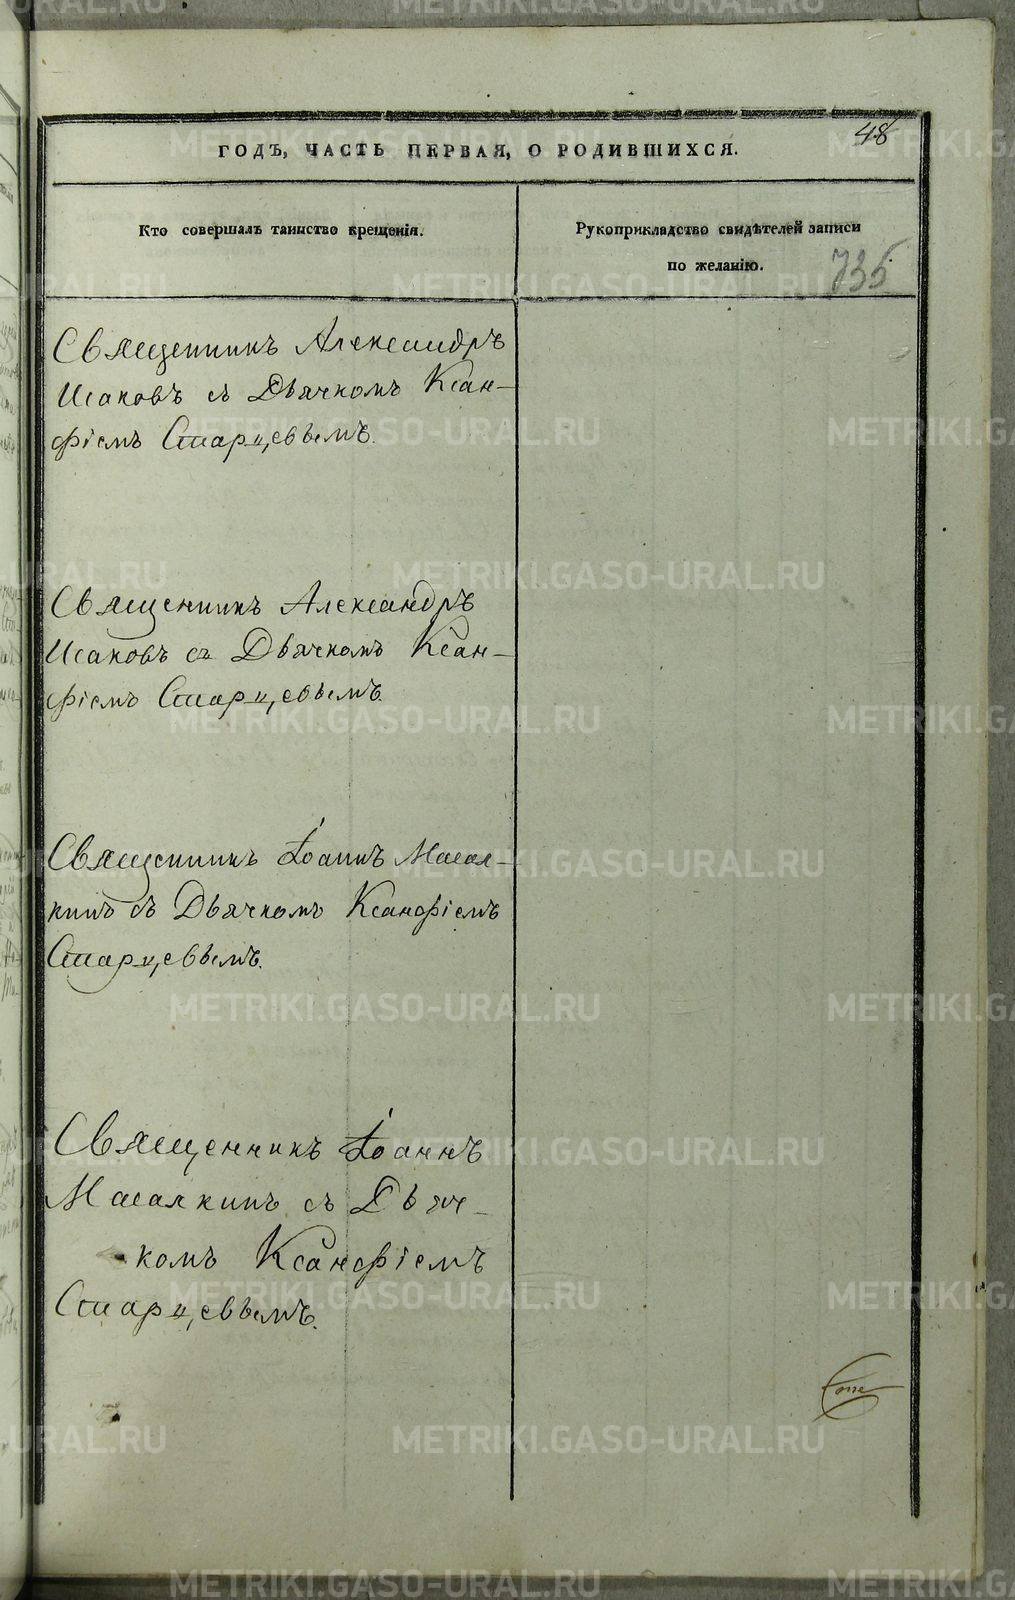 48
ГОДЪ, ЧАСТЬ ПЕРВАЯ, О РОДИВШИХСЯ.
Кто совершалъ таинство крещенія.
Рукоприкладство свидѣтелей записи
по желанію.
735
Священникъ Александръ
Исаковъ съ Дьячкомъ Ксан-
фіемъ Старцевымъ.
Священникъ Александръ
Исаковъ съ Дьячкомъ Ксан-
фіемъ Старцевымъ.
Священникъ Іоаннъ Масал-
кинъ съ Дьячкомъ Ксанфіемъ
Старцевымъ.
Священникъ Іоаннъ
Масалкинъ съ Дьяч-
комъ Ксанфіемъ
Старцевымъ.
METRIKI.GASO-URAL.RU